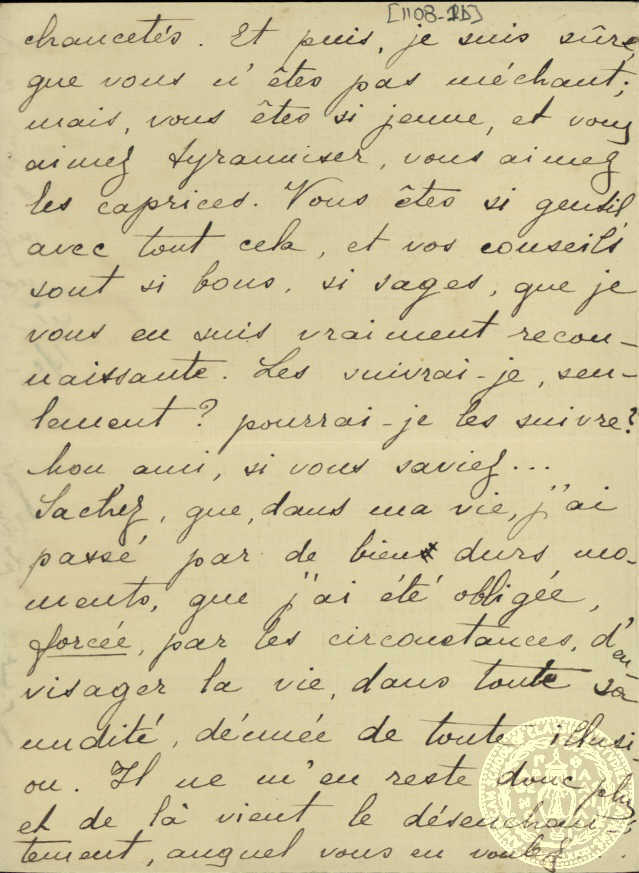 [1108-1b]
chancetés. Et puis, je suis sûre,
que vous n'êtes pas méchant;
mais, vous êtes si jeune, et vous
aimez tyranniser, vous aimez
les caprices. Vous êtes si gentil
avec tout cela, et vos conseils
sont si bons, si sages, que je
vous en suis vraiment recon-
naissante. Les suivrai-je, seu-
lement? pourrai-je les suivre?
Mon ami, si vous saviez...
Sachez, que, dans ma vie, j'ai
passé par de bien durs mo-
ments, que j'ai été obligée,
forcée, par les circonstances, d'en-
visager la vie, dans toute sa
nudité, dénuée de toute illusi-
on. Il ne m'en reste donc plus,
et de là vient le désenchan-
tement, auquel vous en voulez